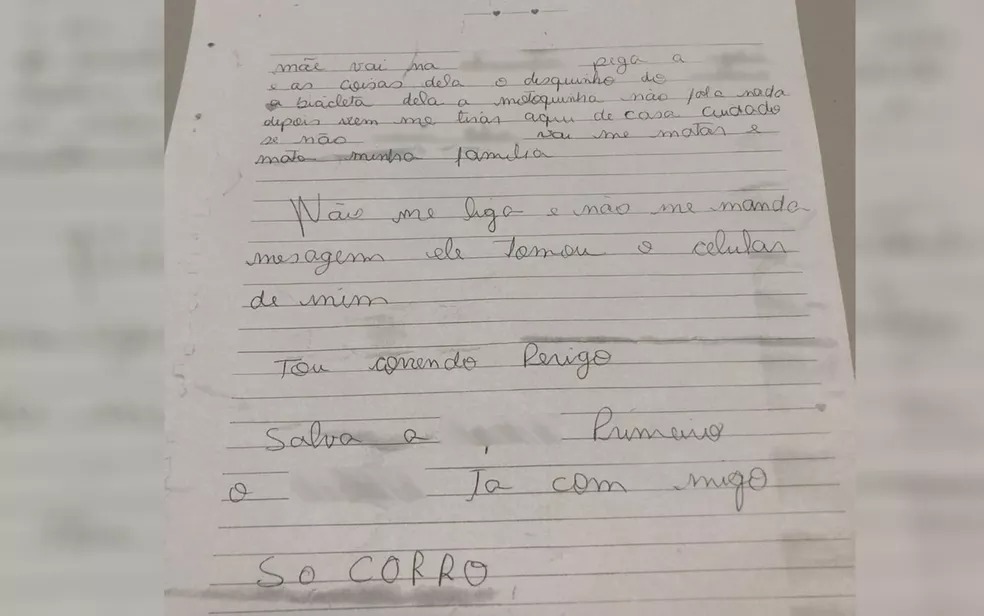 mãe vai na pega a
e as coisas dela o disquinho do
a bicicleta dela a motoquinha não fala nada
depois vem me tirar aqui de casa cuidado
se não vai me matar e
mata minha família
Não me liga e não me manda
mesagem ele tomou o celular
de mim
Tou correndo Perigo
Salva a Primeiro
o Ta com migo
SO CORRO